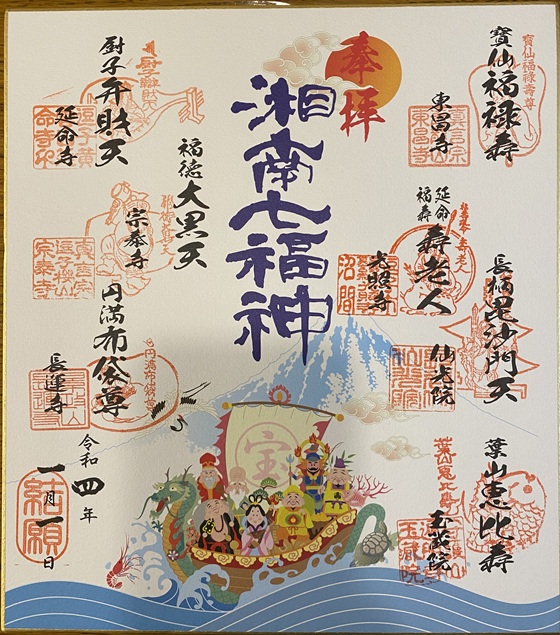 奉拝
湘南七福神
寶仙福禄壽
東昌寺
延命
福壽
壽老人
光照寺
沼間
長柄毘沙門天
仙光院
葉山恵比壽
玉蔵院
厨子弁財天
延命寺
福徳大黒天
宗泰寺
円満布袋尊
長運寺
令和四年
一月一日
結願
宝